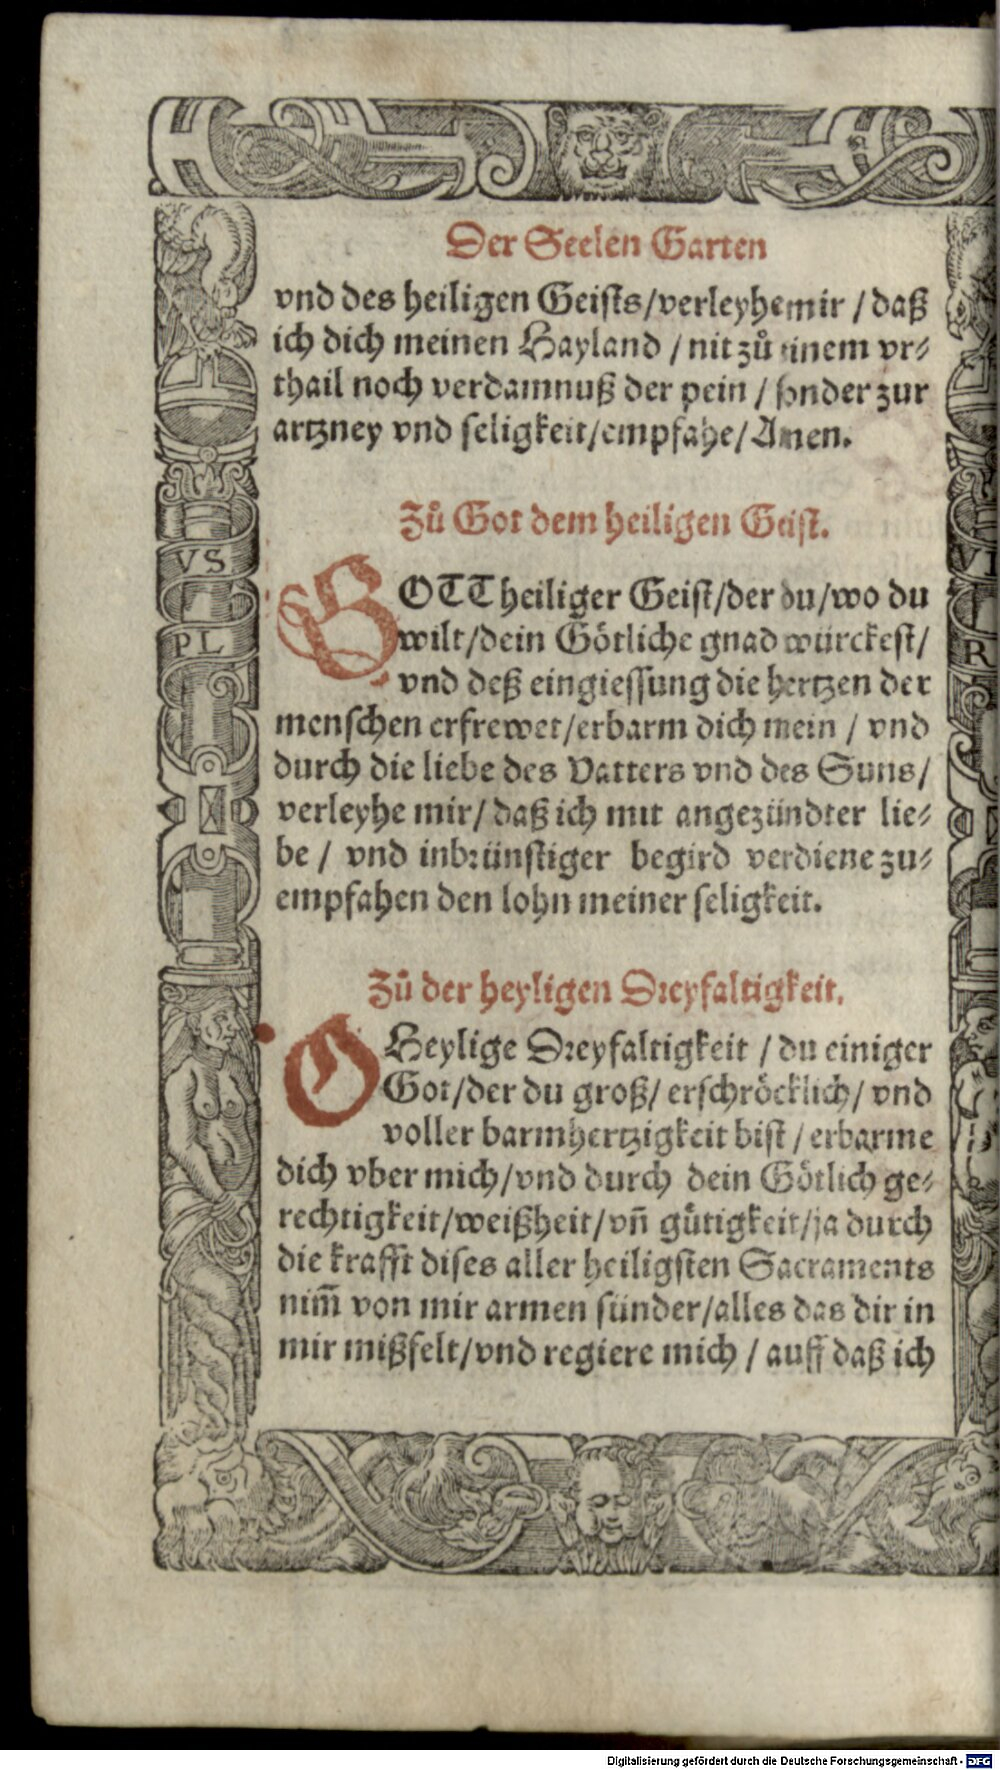 Der Seelen Garten
vnd des heiligen Geists/verleyhe mir / daß
ich dich meinen Hayland / nit zů einem vr⸗
thail noch verdamnuß der pein / sonder zur
artzney vnd seligkeit/empfahe/Amen.
Zů Got dem heiligen Geist.
GOTT heiliger Geist/der du/wo du
wilt/dein Götliche gnad würckest/
vnd deß eingiessung die hertzen der
menschen erfrewet/erbarm dich mein / vnd
durch die liebe des Vatters vnd des Suns/
verleyhe mir/ daß ich mit angezündter lie⸗
be / vnd inbrünstiger begird verdiene zu⸗
empfahen den lohn meiner seligkeit.
Zů der heyligen Dreyfaltigkeit.
O Heylige Dreyfaltigkeit / du einiger
Got/der du groß/ erschröcklich/ vnd
voller barmhertzigkeit bist / erbarme
dich vber mich/vnd durch dein Götlich ge⸗
rechtigkeit/weißheit/vn̄ gütigkeit/ja durch
die krafft dises aller heiligsten Sacraments
nim̄ von mir armen sünder/alles das dir in
mir mißfelt/vnd regiere mich / auff daß ich
VS
PL
VI
R
Digitalisierung gefördert durch die Deutsche Forschungsgemeinschaft - DFG